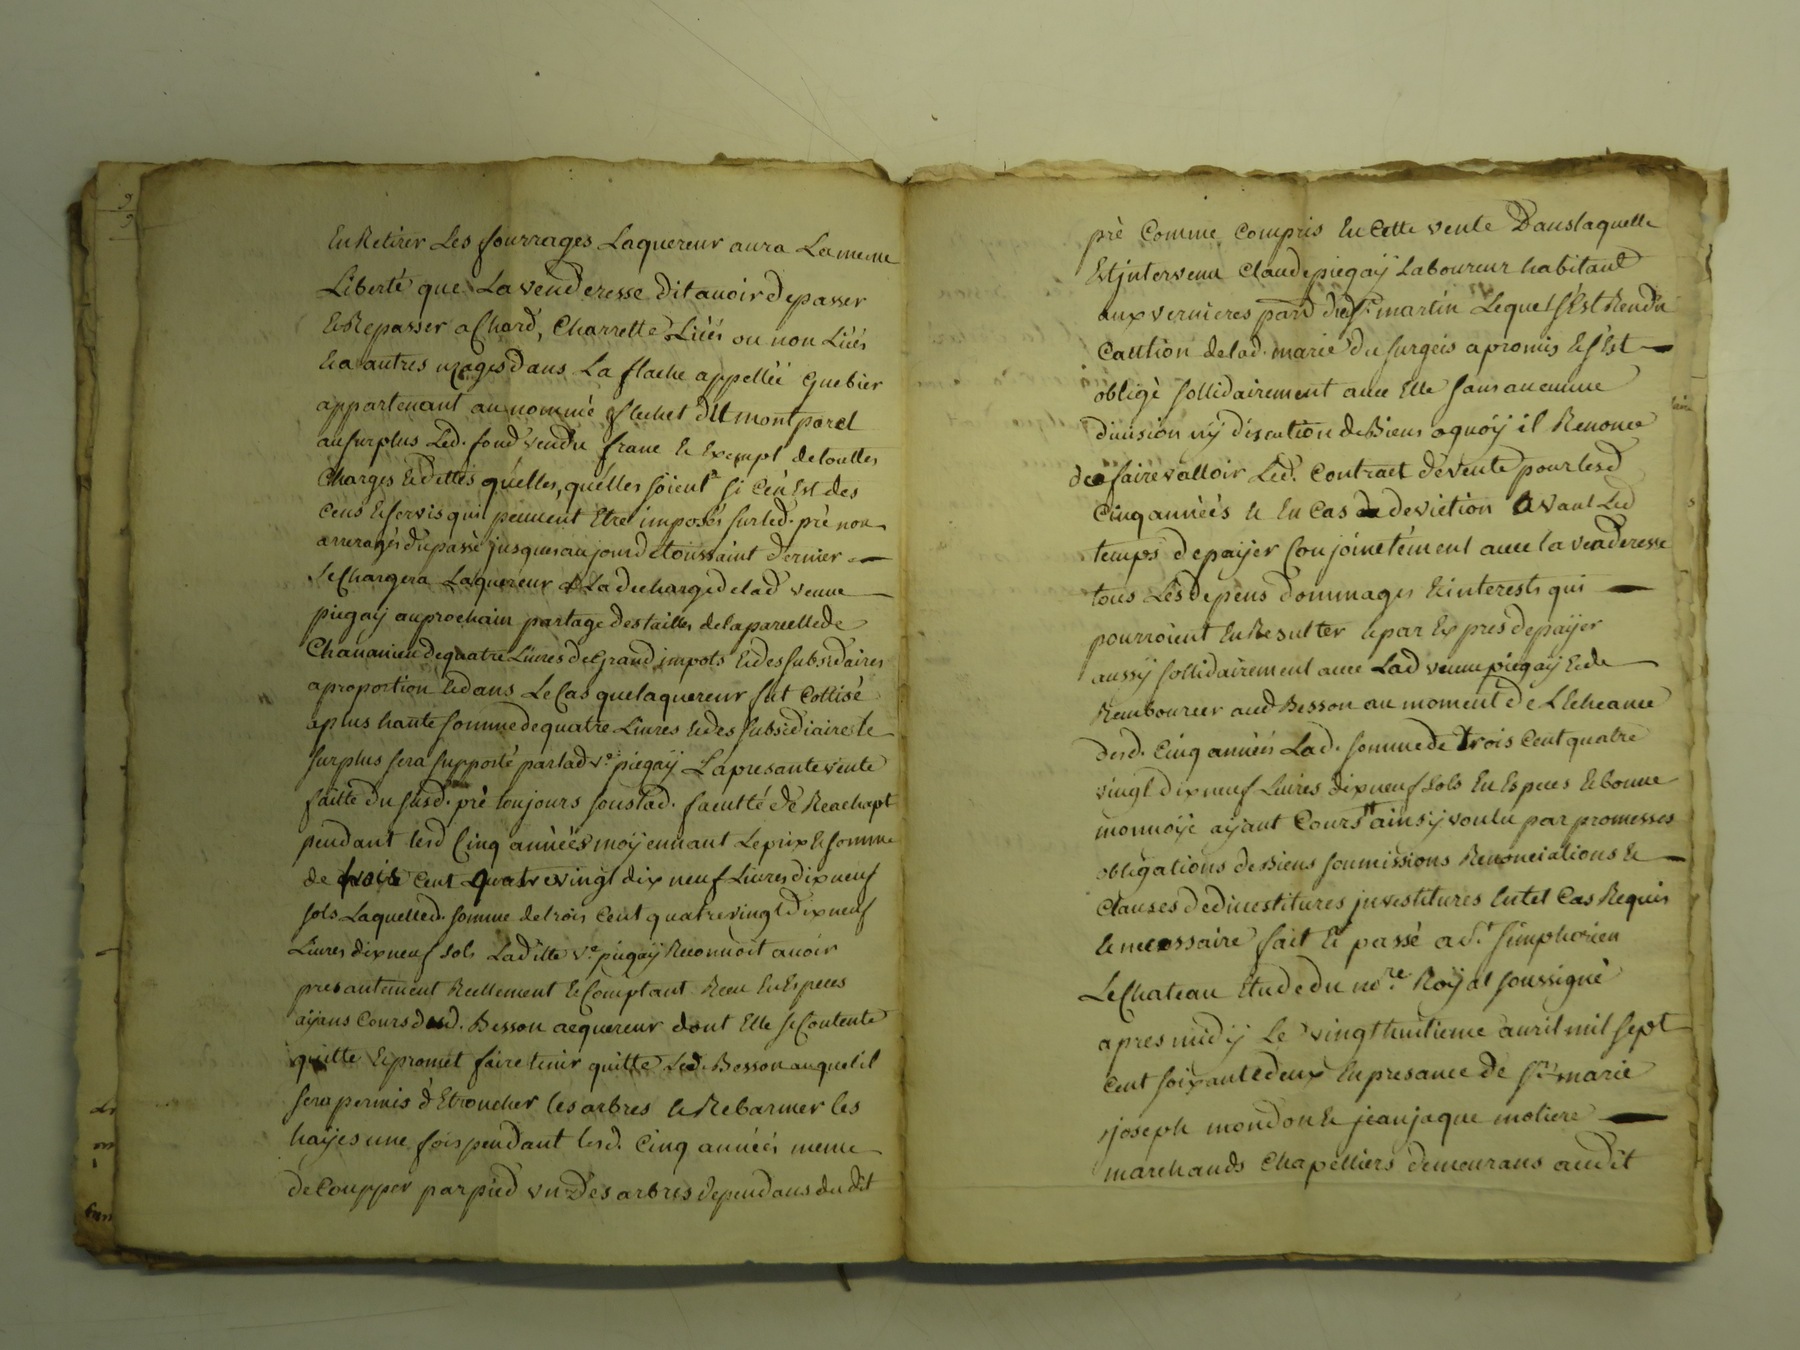 En Retirer Les fourrages Laquereur aura La meme
Liberté que La venderesse dit avoir de passer
Et Repasser a Chard, Charrette Liéés ou non Liéés
Et a autres uzages dans La flache appelléé Guebier
appartenant au nommé flechet dit montparel
au surplus Led. fond vendu franc Et Exempt de touttes
Charges Et dettes quelles, quelles soient si ce n'Est des
Cens Et servis qui peuvent Etre imposés sur led. pré non
arreragés du passé jusques au jour de toussaint dernier
se Chargera Laquereur a La decharge de lad veuve
piegaÿ au prochain partage des tailles de la parcelle de
Chavanieu de quatre Livres de Grand impots Et des subsidiaires
a proportion Et dans Le Cas que laquereur fut Cottisé
a plus haute somme de quatre Livres Et des subsidiaires le
surplus sera supporté par lad ve. piegaÿ La presante vente
faitte du susd. pré toujours sous lad. faculté de Reachapt
pendant lesd Cinq annéés moÿennant Le prix Et somme
de trois Cent Quatre vingt dix neuf Livres dix neuf
sols Laquelle d. somme de trois Cent quatre vingt dix neuf
Livres dix neuf sols Laditte ve. piegaÿ Reconnoit avoir
presantement Reellement Et Comptant Receu En Especes
aÿans Cours dud. Besson acquereur dont Elle se Contente
quitte Et promet faire tenir quitte Led. Besson auquel il
sera permis d'Etroncher les arbres Et Rebarmer les
haÿes une fois pendant lesd. Cinq annéés meme
de Coupper par pied un des arbres dependans du dit
pré Comme Compris En Cette vente Dans laquelle
Est jntervenu Claude piegaÿ Laboureur habitant
aux vernieres parr. du d. St. martin Lequel s'Est Rendu
Caution de lad. marie Du surgeis a promis Et s'Est
obligé sollidairement avec Elle sans aucunne
division nÿ discution de Biens a quoÿ il Renonce
de faire valloir Led. Contract de vente pour lesd
Cinq annéés Et En Cas de deviction Avant Led
temps de paÿer Conjoinctement avec la venderesse
tous Les depens dommages Et interests qui
pourroient En Resulter Et par Exprés de paÿer
aussÿ sollidairement avec Lad veuve piegaÿ Et de
Rembourcer aud Besson au moment de L'Echeance
desd. Cinq annéés Lad. somme de trois Cent quatre
vingt dix neuf Livres dix neuf sols En Especes Et bonne
monnoÿe aÿant Cours ainsÿ voulu par promesses
obligations de Biens soumissions Renonciations Et
Clauses de devestitures jnvestitures En tel Cas Requis
Et necessaire fait Et passé a St. simphorien
Le Chateau Etude du no.re Roÿal soussigné
apres midÿ Le vingt huitieme avril mil sept
Cent soixante deux En presance de sr. marie
joseph mondon Et jean jaque moliere
marchands Chapelliers demeurans audit